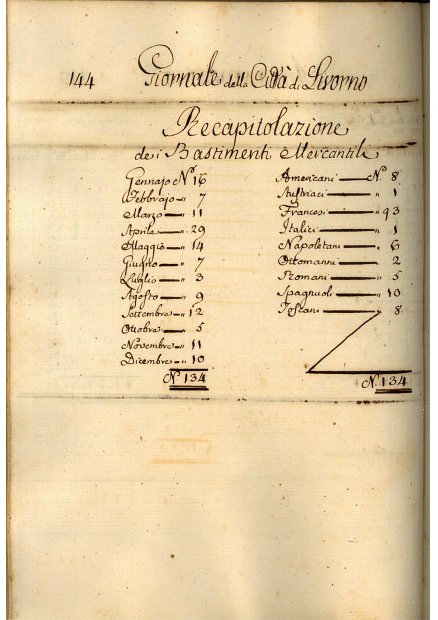 144 Giornale della Città di Livorno
Recapitolazione
dei Bastimenti Mercantili
Gennajo Nº 16
Febbrajo " 7
Marzo " 11
Aprile " 29
Maggio " 14
Giugno " 7
Luglio " 3
Agosto " 9
Settembre " 12
Ottobre " 5
Novembre " 11
Dicembre " 10
Nº 134
Americani Nº 8
Austriaci " 1
Francesi " 93
Italici " 1
Napoletani " 6
Ottomanni " 2
Romani " 5
Spagnuoli " 10
Toscani " 8
Nº 134